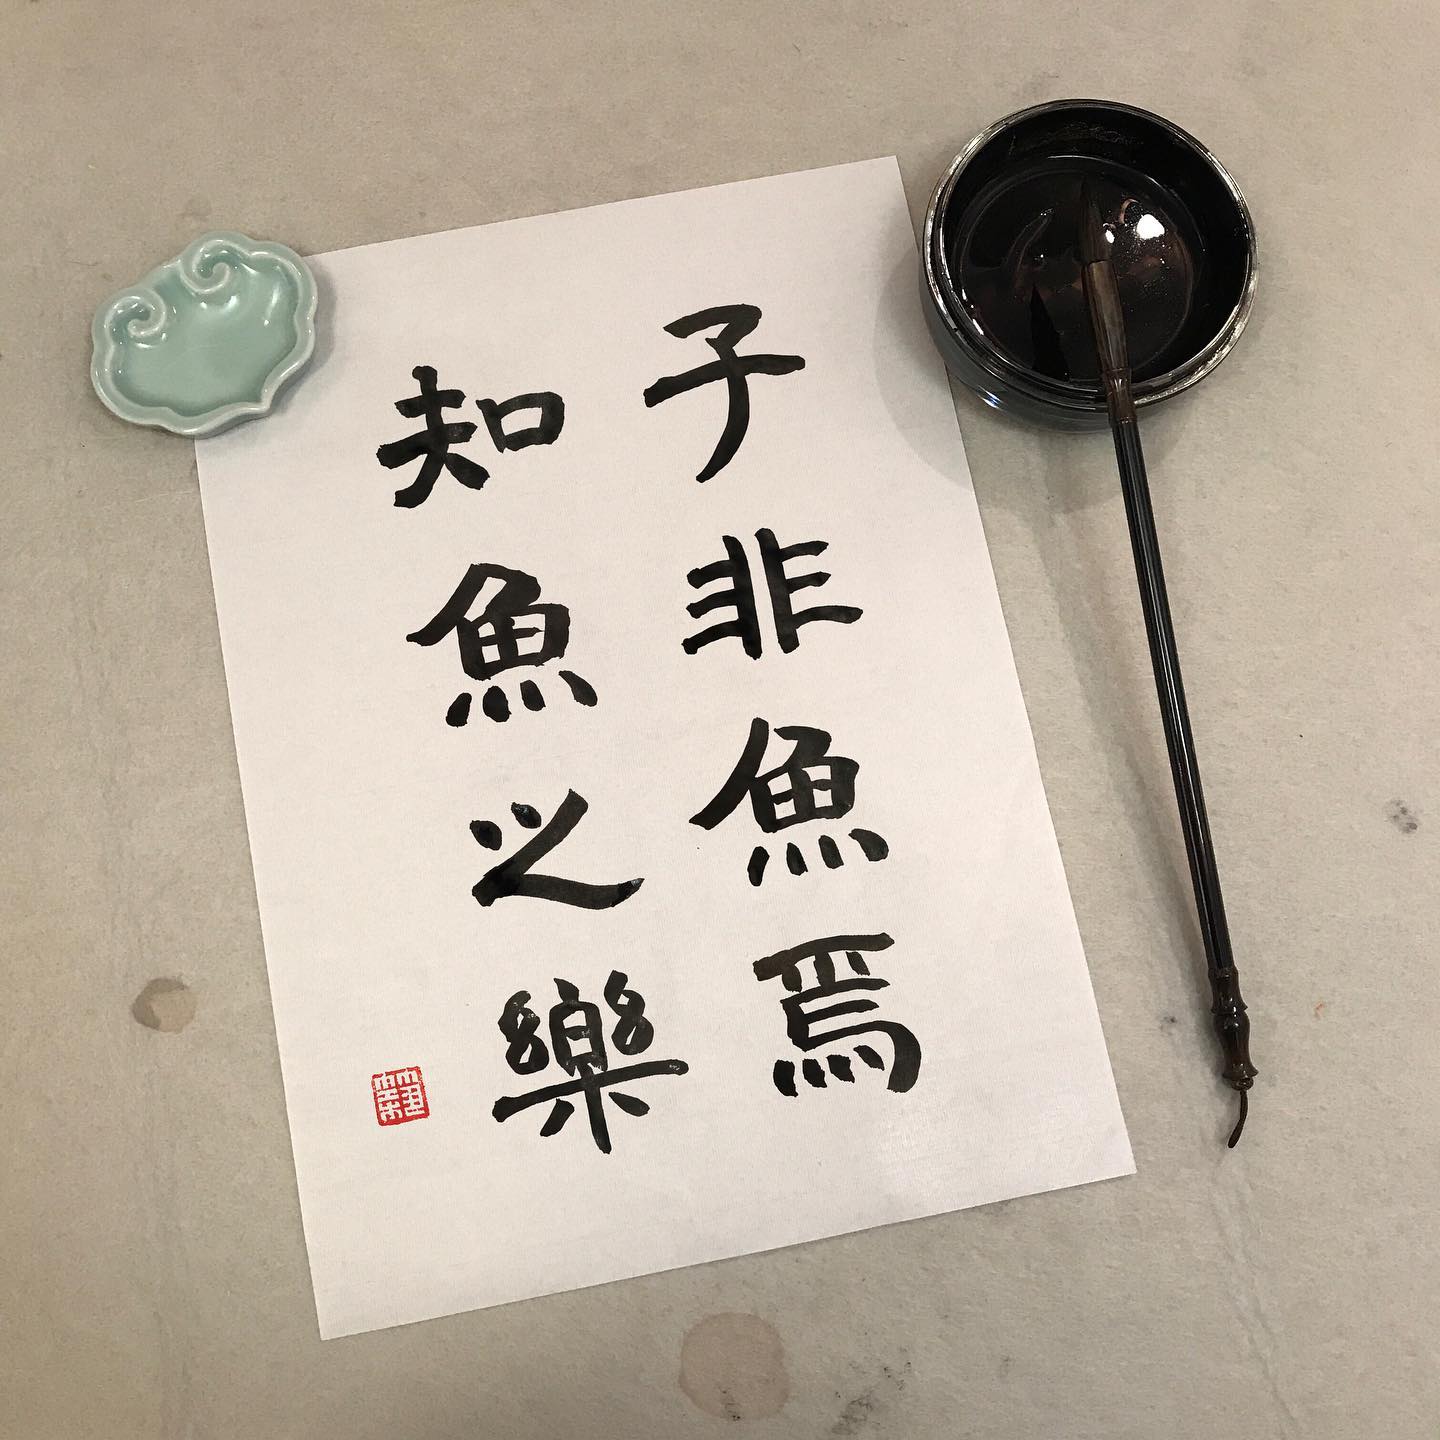 子非魚焉
知魚之樂